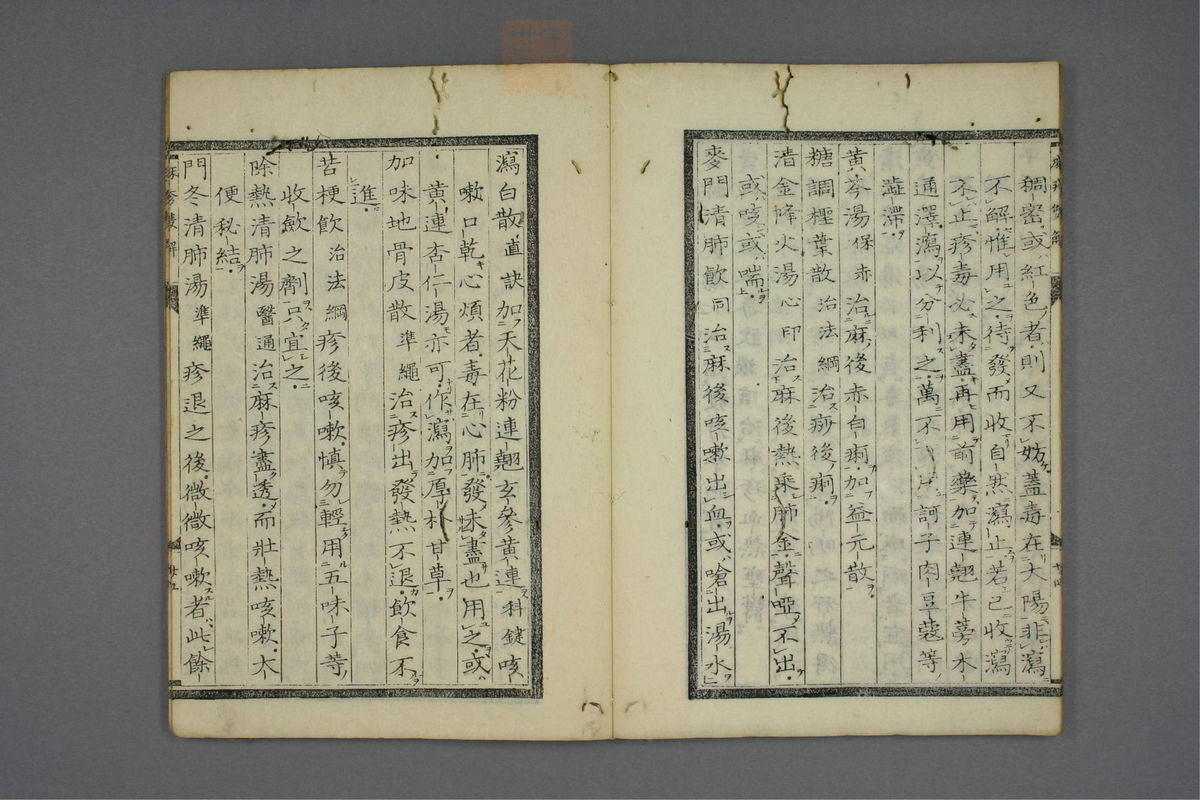 稠密或紅色者則又不妨蓋毒在大陽非瀉
不解惟用之待發而收自然瀉止若已收瀉
不止疹毒必未盡再用前藥加連翹牛蒡木
通澤瀉以分利之萬不 訶子肉豆蔻等
澁滯
黃芩湯保赤治麻後赤白痢加益元散
糖調檉葉散治法綱治痧後痢
清金降火湯心印治麻後熱乘肺金聲啞不出
或咳或喘
麥門清肺飲同治麻後咳嗽出血或嗆出湯水
瀉白散直訣加天花粉連翹玄參黃連科鍵咳
嗽口乾心煩者毒在心肺發未盡也用之或
黃連杏仁湯亦可作瀉加厚朴甘草
加味地骨皮散準繩治疹出發熱不退飲食不
進
苦梗飲治法綱疹後咳嗽慎勿輕用五味子等
收斂之劑只宜之
除熱清肺湯醫通治麻疹盡透而壯熱咳嗽大
便秘結
門冬清肺湯準繩疹退之後微微咳嗽者此餘